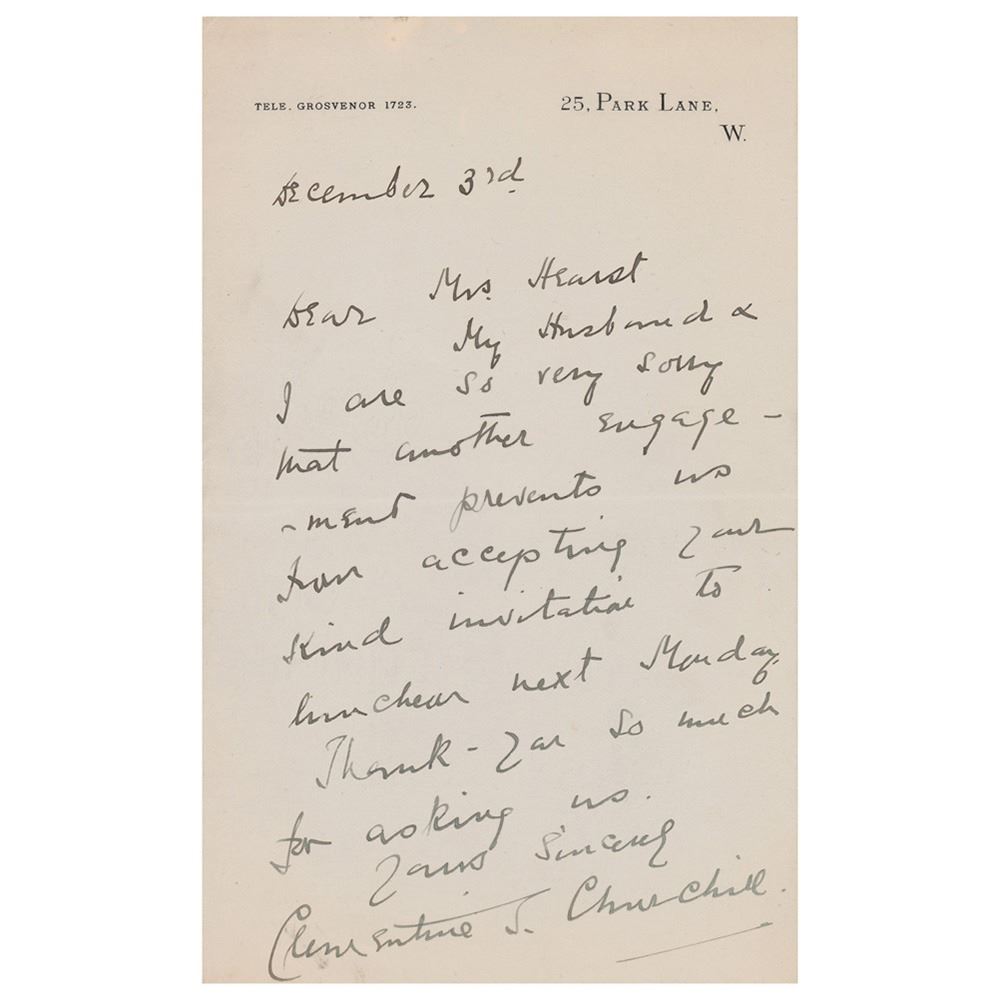 TELE. GROSVENOR 1723.
25, PARK LANE,
W.
December 3rd.
Dear Mrs. Hearst
My Husband &
I are so very sorry
that another engage-
-ment prevents us
from accepting your
kind invitation to
luncheon next Monday.
Thank-you so much
for asking us.
Yours Sincerely
Clementine S. Churchill.